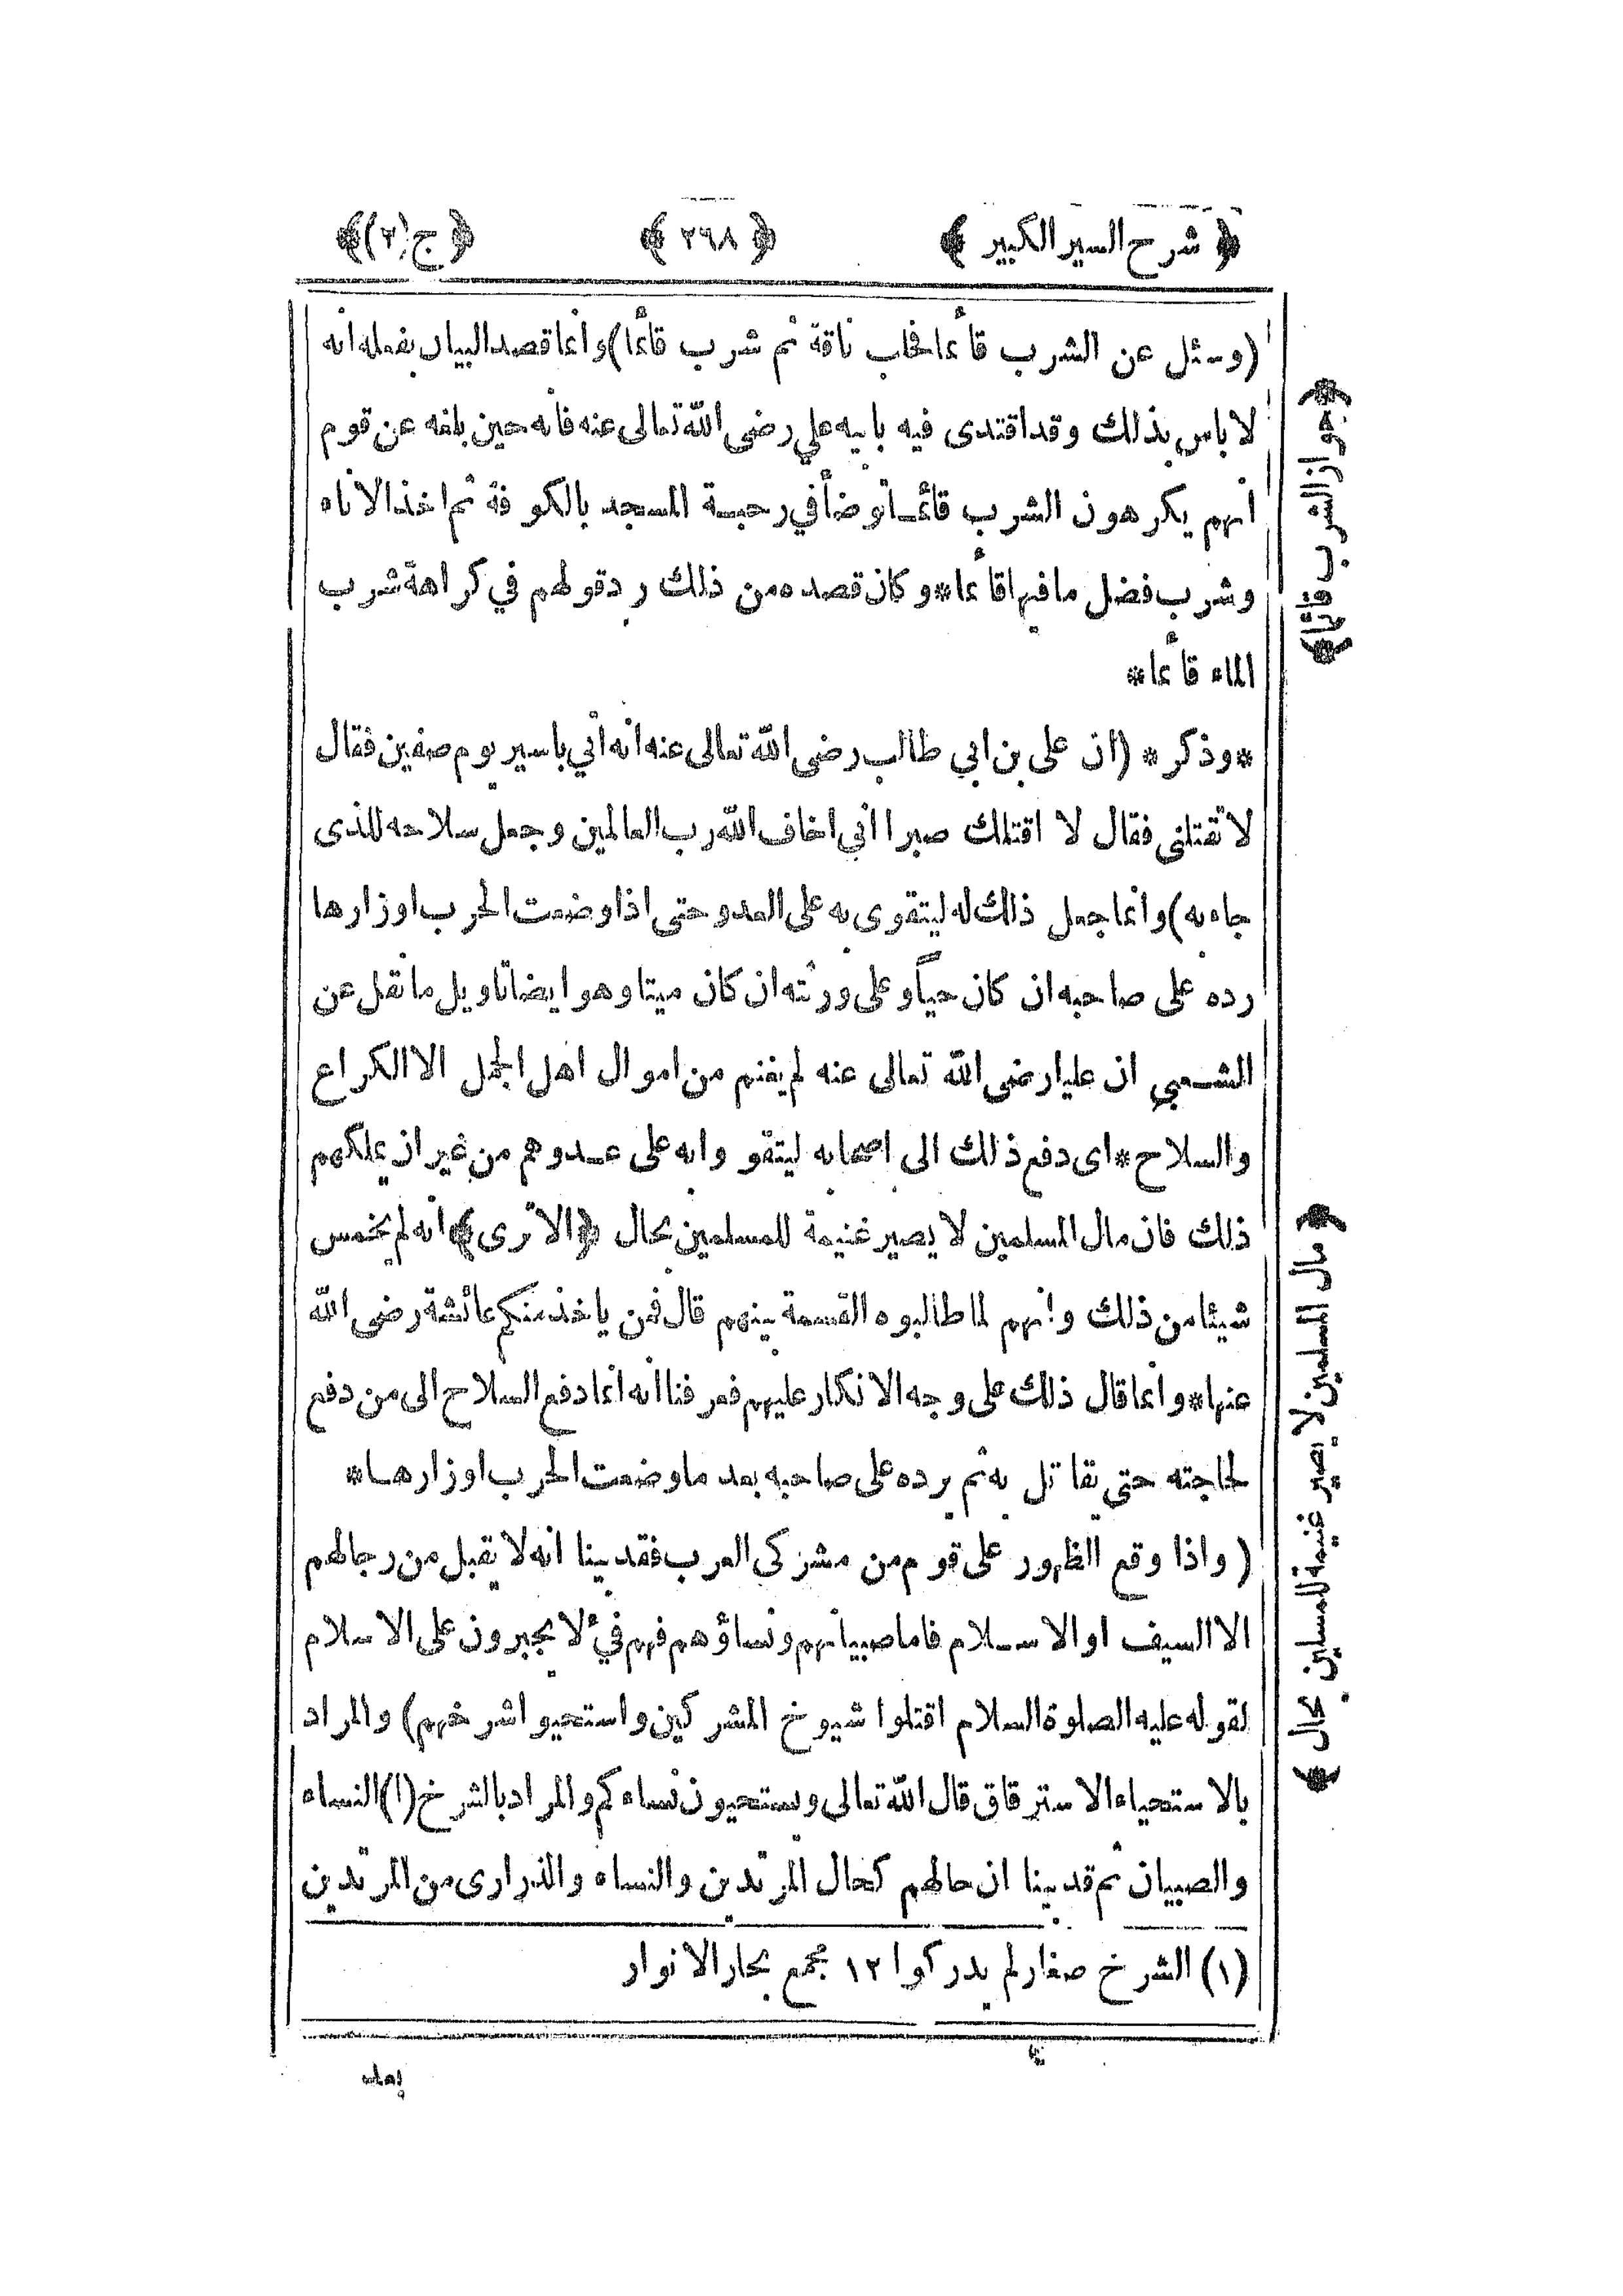 ﴿ شرح السير الكبير ﴾ ﴿ ٢٦٨ ﴾ ﴿ ج (٢) ﴾
(وسئل عن الشرب قائما فحلب ناقة ثم شرب قائما) وانما قصد البيان بفعله انه
لا باس بذلك وقد اقتدى فيه بابيه علي رضى الله تعالى عنه فانه حين بلغه عن قوم
انهم يكرهون الشرب قائما توضأ في رحبة المسجد بالكوفة ثم اخذ الاناء
وشرب فضل ما فيها قائما * وكان قصده من ذلك رد قولهم في كراهة شرب
الماء قائما *
* وذكر * (ان على بن ابي طالب رضى الله تعالى عنه انه اتي باسير يوم صفين فقال
لا تقتلنى فقال لا اقتلك صبرا اني اخاف الله رب العالمين وجعل سلاحه للذى
جاء به) وانما جعل ذلك له ليتقوى به على العدو حتى اذا وضعت الحرب اوزارها
رده على صاحبه ان كان حياً وعلى ورثته ان كان ميتا وهو ايضا تاويل ما نقل عن
الشعبي ان عليا رضى الله تعالى عنه لم يغنم من اموال اهل الجمل الا الكراع
والسلاح * اى دفع ذلك الى اصحابه ليتقووا به على عدوهم من غير ان يملكهم
ذلك فان مال المسلمين لا يصير غنيمة للمسلمين بحال ﴿الا ترى﴾ انه لم يخمس
شيئا من ذلك وانهم لما طالبوه القسمة بينهم قال فمن ياخذ منكم عائشة رضى الله
عنها * وانما قال ذلك على وجه الانكار عليهم فعرفنا انه انما دفع السلاح الى من دفع
لحاجته حتى يقاتل به ثم يرده على صاحبه بعد ما وضعت الحرب اوزارها *
(واذا وقع الظهور على قوم من مشركى العرب فقد بينا انه لا يقبل من رجالهم
الا السيف او الاسلام فاما صبيانهم ونساؤهم فهم فئ لا يجبرون على الاسلام
لقوله عليه الصلوة السلام اقتلوا شيوخ المشركين واستحيوا شرخهم) والمراد
بالاستحياء الاسترقاق قال الله تعالى ويستحيون نساءكم والمراد بالشرخ (١) النساء
والصبيان ثم قد بينا ان حالهم كحال المرتدين والنساء والذرارى من المرتدين
(١) الشرخ صغار لم يدركوا ١٢ مجمع بحار الانوار
بعد
﴿جواز الشرب قائما﴾
﴿ مال المسلمين لا يصير غنيمة للمسلمين بحال ﴾